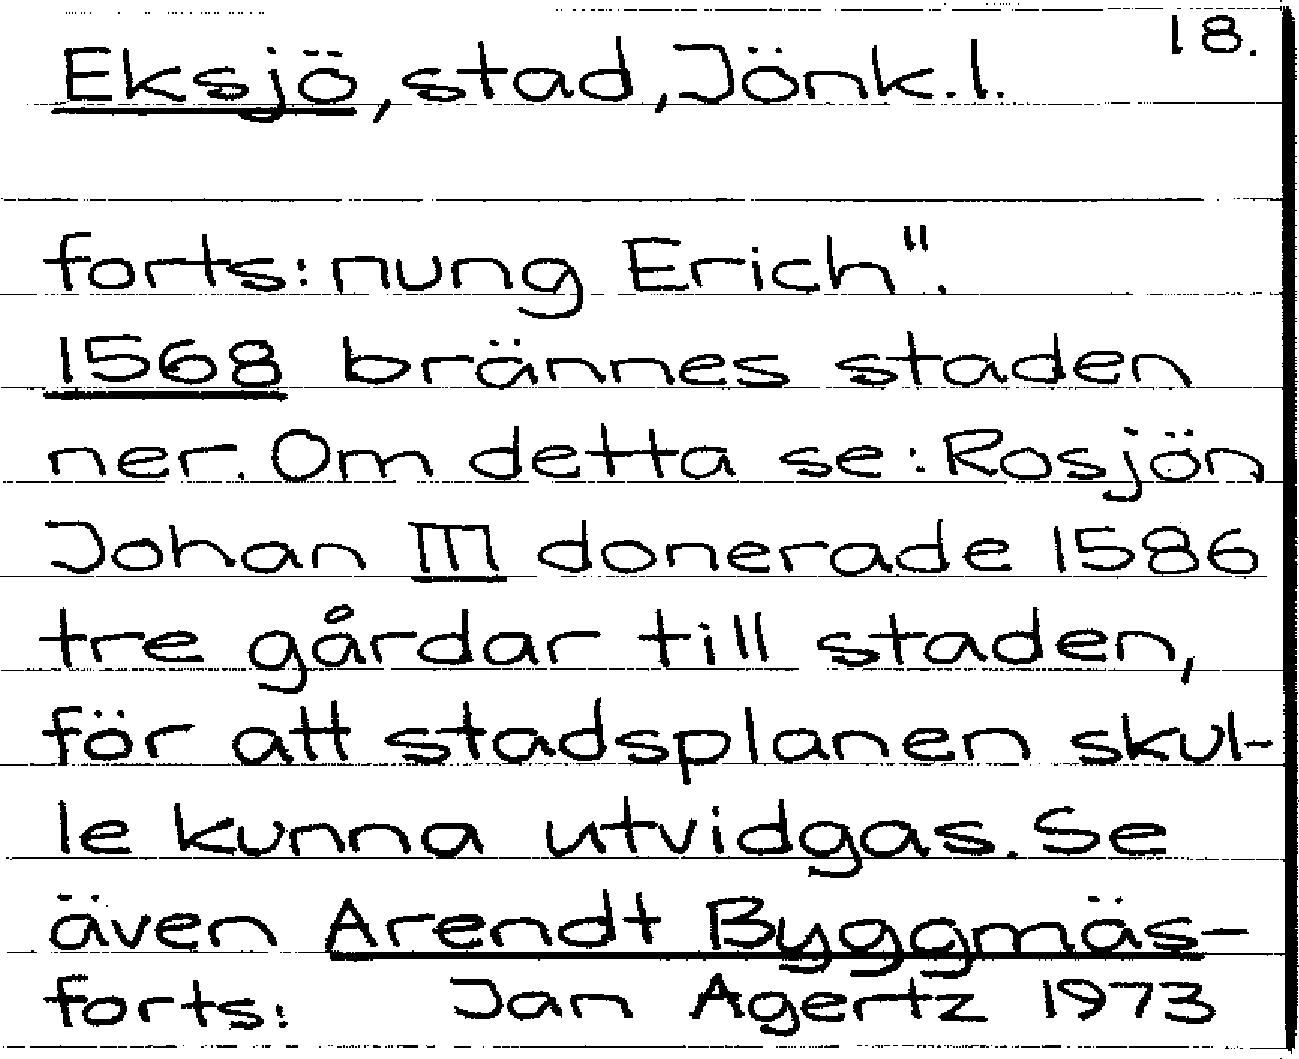 18.
Eksjö, stad, Jönk.l.
forts: nung Erich".
1568 brännes staden
ner. Om detta se: Rosjön
Johan III donerade 1586
tre gårdar till staden,
för att stadsplanen skul-
le kunna utvidgas. Se
även Arendt Byggmäs-
forts: Jan Agertz 1973